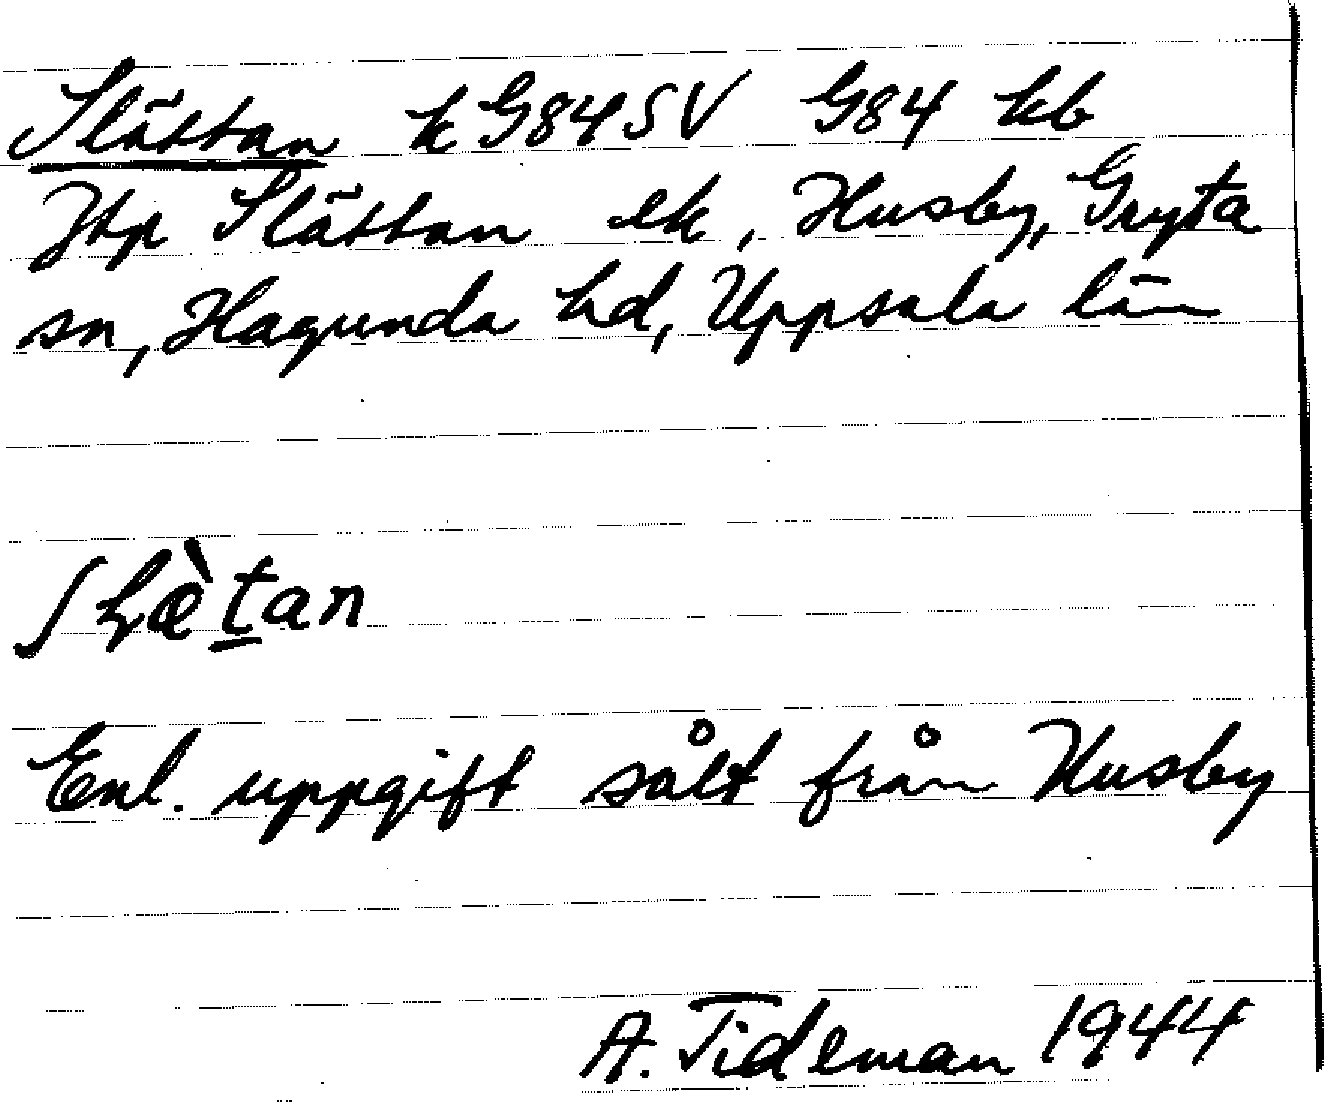 Slättan k G84SV G84 kb
Jtp Slättan ek, Husby, Gryta
sn, Hagunda hd, Uppsala län
ʃⱡæ̀t̠an
Enl. uppgift sålt från Husby
A. Tideman 1944